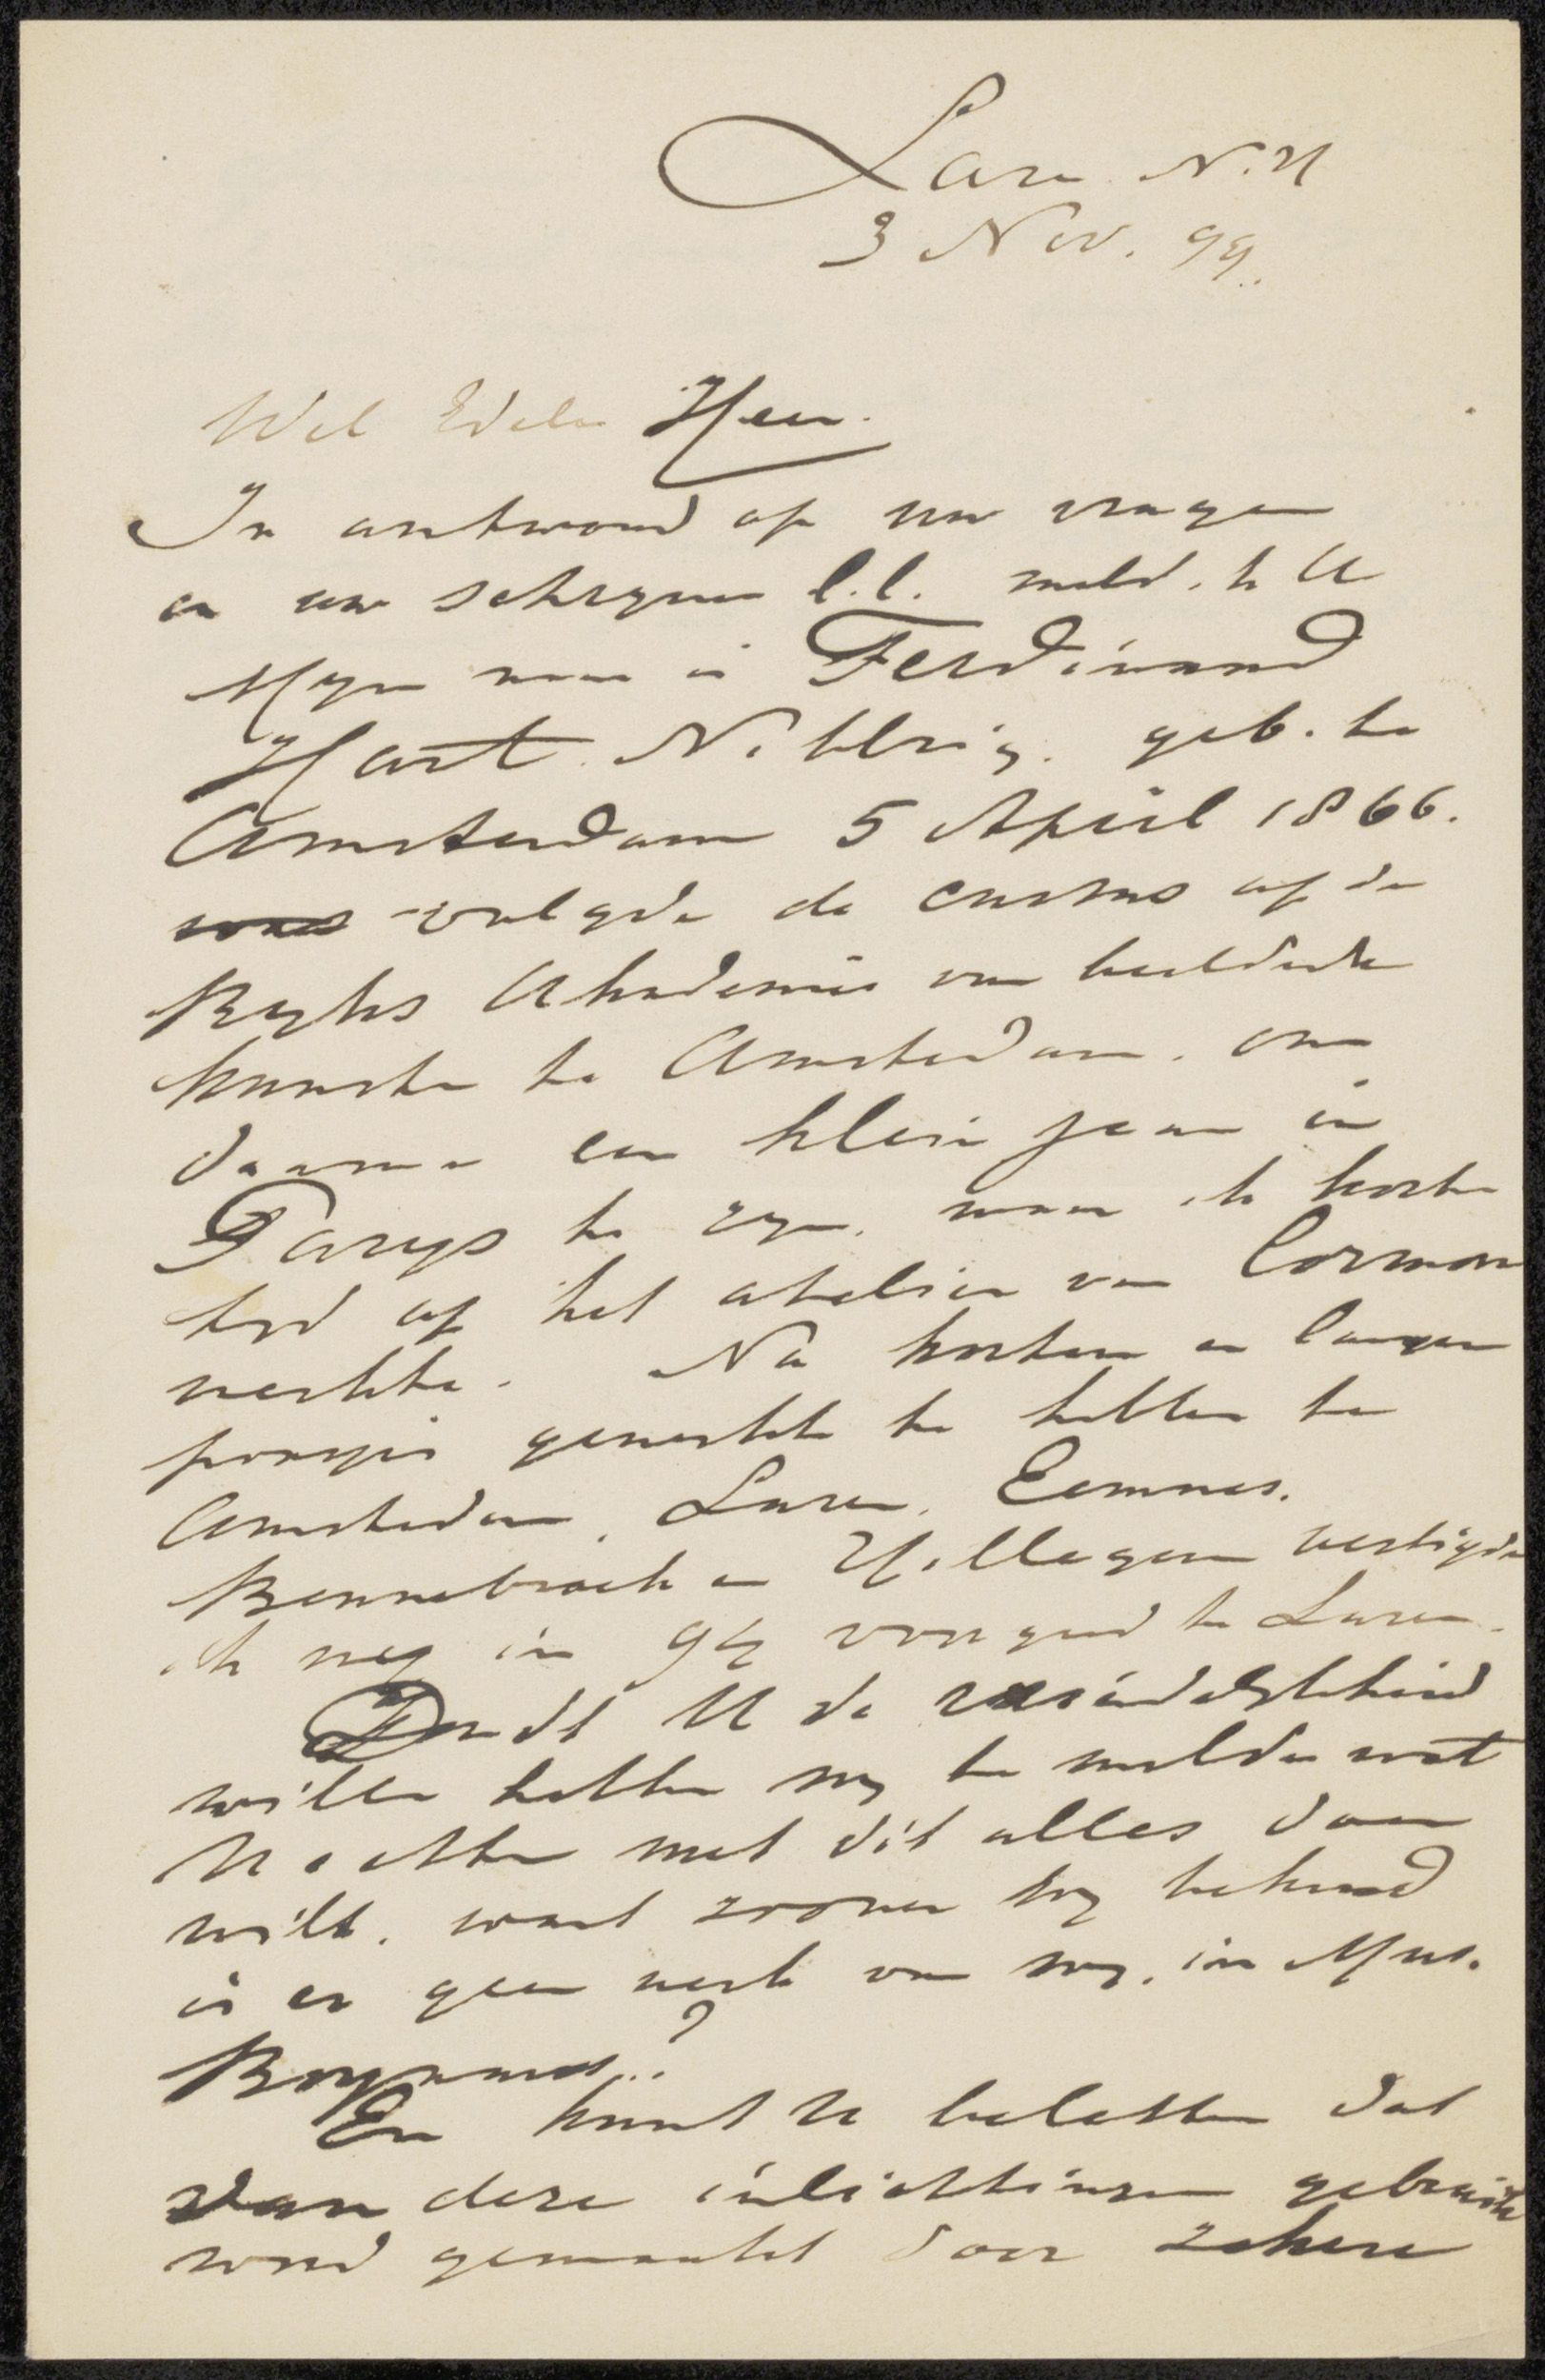 Laren N.H
3 Nov. 99.
Wel Edele Heer.
In antwoord op uw vragen
en uw schrijven l.l. meld ik U
Mijn naam is Ferdinand
Hart Nibbrig. geb. te
Amsterdam 5 April 1866.
volgde de cursus op de
Rijks Akademie van beeldende
kunsten te Amsterdam. om
daarna een klein jaar in
Parijs te zijn. waar ik korten
tijd op het atelier van Cormon
werkte. Na korter en langer
poozen gewerkt te hebben te
Amsterdam, Laren, Eemnes.
Bennebroek en Hillegom vestigde
ik mij in 94 voor goed te Laren.
Zoudt U de vriendelijkheid
willen hebben mij te melden wat
U echter met dit alles doen
wilt. want zoover mij bekend
is er geen werk van mij in Mus.
Boymans..?
En kunt U beletten dat
van deze inlichtingen gebruik
word gemaakt door zekere